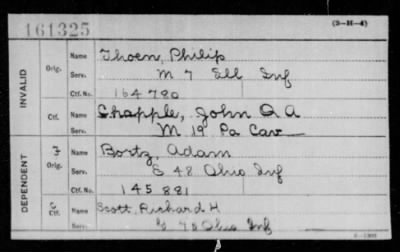 161325
(3-H-4)
INVALID
Orig.
Name Thoen, Philip
Serv. M 7 Ill Inf
Ctf. No. 164790
Ctf.
Name Chapple, John Q A
Serv. M 19 Pa Cav
DEPENDENT
Orig.
Name Bortz, Adam
Serv. E 48 Ohio Inf
Ctf. No. 145881
C
Ctf.
Name Scott, Richard H
Serv. 78 Ohio Inf